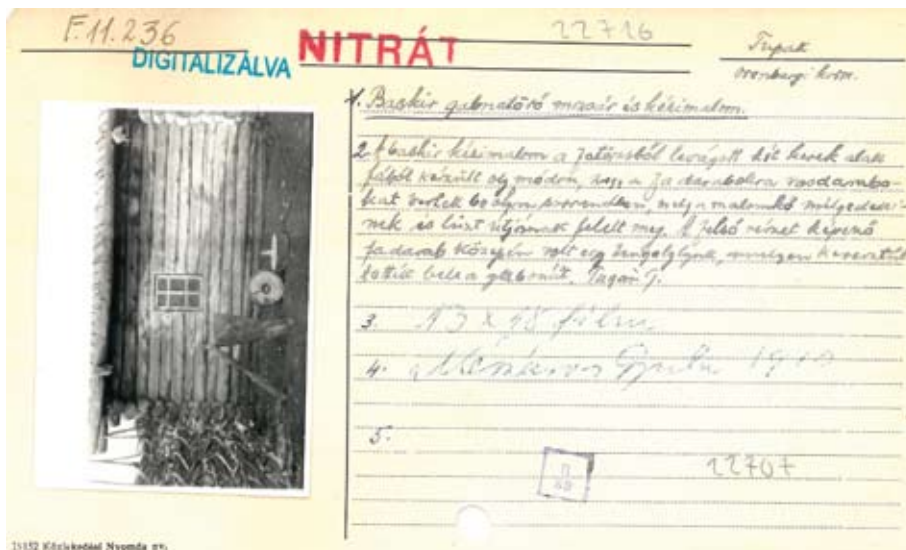 F.11.236
DIGITALIZÁLVA
NITRÁT
22716
Tupák
orenburgi korm.
1. Baskir gabnatörő mozsár és kézimalom.
2. A baskir kézimalom a fatörzsből levágott két kerek alak
fából készült oly módon, hogy a fa darabokra vasdarabo-
kat vertek be olyan sorrendben, mely a malomkő mélyedései-
nek és liszt útjának felelt meg. A felső részet képező
fadarab közepén volt egy tengelylyuk, melyen keresztül
bele a gabonát. Tagán G.
3. 13 x 18 film
4. Mészáros Gyula 19
5.
22707
15152 Közlekedési Nyomda nv.